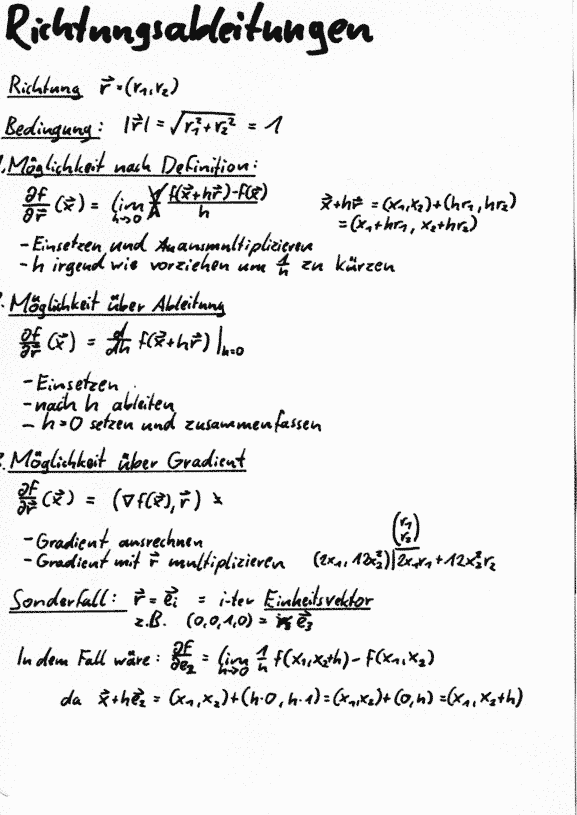 Richtungsableitungen
Richtung r⃗ = (r₁, r₂)
Bedingung: |r⃗| = √(r₁² + r₂²) = 1
1. Möglichkeit nach Definition:
∂f/∂r⃗ (x⃗) = lim h→0 (f(x⃗+hr⃗) - f(x⃗))/h
x⃗+hr⃗ = (x₁,x₂)+(hr₁, hr₂)
= (x₁+hr₁, x₂+hr₂)
- Einsetzen und Ausmultiplizieren
- h irgendwie vorziehen um 1/h zu kürzen
2. Möglichkeit über Ableitung
∂f/∂r⃗ (x⃗) = d/dh f(x⃗+hr⃗) |h=0
- Einsetzen
- nach h ableiten
- h=0 setzen und zusammenfassen
3. Möglichkeit über Gradient
∂f/∂r⃗ (x⃗) = (∇f(x⃗), r⃗)
- Gradient ausrechnen
(r₁ r₂)
- Gradient mit r⃗ multiplizieren (2x₁, 12x₂²)|2x₁r₁+12x₂²r₂
Sonderfall: r⃗ = e⃗ᵢ = i-ter Einheitsvektor
z.B. (0,0,1,0) = e⃗₃
In dem Fall wäre: ∂f/∂e₂ = lim h→0 1/h f(x₁,x₂+h) - f(x₁,x₂)
da x⃗+he⃗₂ = (x₁,x₂)+(h·0, h·1) = (x₁,x₂)+(0,h) = (x₁, x₂+h)